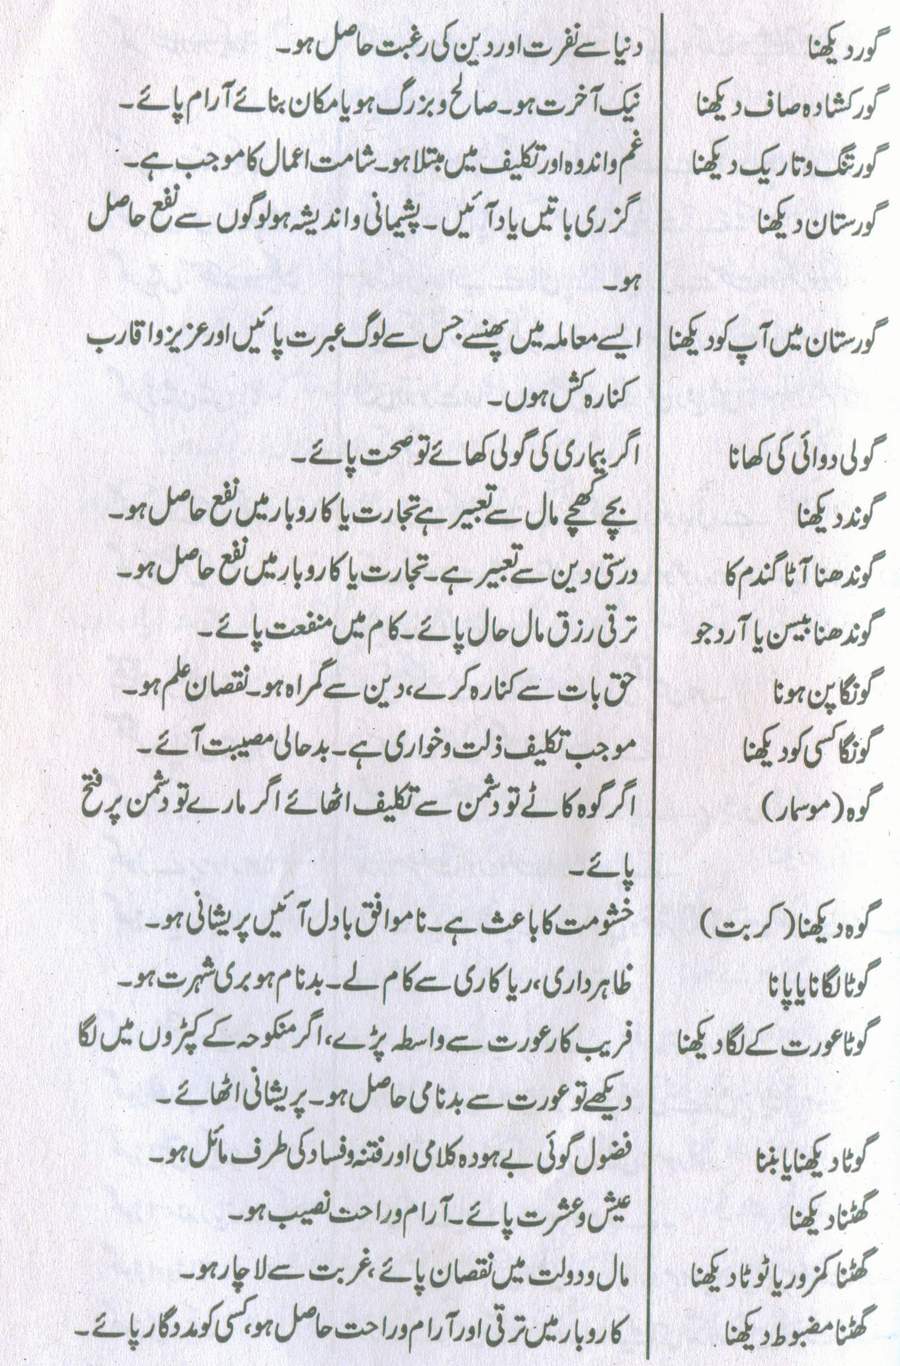 گور دیکھنا دنیا سے نفرت اور دین کی رغبت حاصل ہو۔
گور کشادہ صاف دیکھنا نیک آخرت ہو۔ صالح و بزرگ ہو یا مکان بنائے آرام پائے۔
گور تنگ و تاریک دیکھنا غم و اندوہ اور تکلیف میں مبتلا ہو۔ شامت اعمال کا موجب ہے۔
گورستان دیکھنا گزری باتیں یاد آئیں۔ پشیمانی و اندیشہ ہو لوگوں سے نفع حاصل
ہو۔
گورستان میں آپ کو دیکھنا ایسے معاملہ میں پھنسے جس سے لوگ عبرت پائیں اور عزیز و اقارب
کنارہ کش ہوں۔
گولی دوائی کی کھانا اگر بیماری کی گولی کھائے تو صحت پائے۔
گوند دیکھنا بچے کھچے مال سے تعبیر ہے تجارت یا کاروبار میں نفع حاصل ہو۔
گوندھنا آٹا گندم کا درستی دین سے تعبیر ہے۔ تجارت یا کاروبار میں نفع حاصل ہو۔
گوندھنا بیسن یا آرد جو ترقی رزق مال حال پائے۔ کام میں منفعت پائے۔
گونگا پن ہونا حق بات سے کنارہ کرے، دین سے گمراہ ہو۔ نقصان علم ہو۔
گونگا کسی کو دیکھنا موجب تکلیف ذلت و خواری ہے۔ بدحالی مصیبت آئے۔
گوہ (موسمار) اگر گوہ کاٹے تو دشمن سے تکلیف اٹھائے اگر مارے تو دشمن پر فتح
پائے۔
گوہ دیکھنا (کربت) خشومت کا باعث ہے۔ ناموافق بادل آئیں پریشانی ہو۔
گوٹا لگانا یا پانا ظاہرداری، ریاکاری سے کام لے۔ بدنام ہو بری شہرت ہو۔
گوٹا عورت کے لگا دیکھنا فریب کار عورت سے واسطہ پڑے، اگر منکوحہ کے کپڑوں میں لگا
دیکھے تو عورت سے بدنامی حاصل ہو۔ پریشانی اٹھائے۔
گوٹا دیکھنا یا بننا فضول گوئی بے ہودہ کلامی اور فتنہ و فساد کی طرف مائل ہو۔
گھٹنا دیکھنا عیش و عشرت پائے۔ آرام و راحت نصیب ہو۔
گھٹنا کمزور یا ٹوٹا دیکھنا مال و دولت میں نقصان پائے، غربت سے لاچار ہو۔
گھٹنا مضبوط دیکھنا کاروبار میں ترقی اور آرام و راحت حاصل ہو، کسی کو مددگار پائے۔